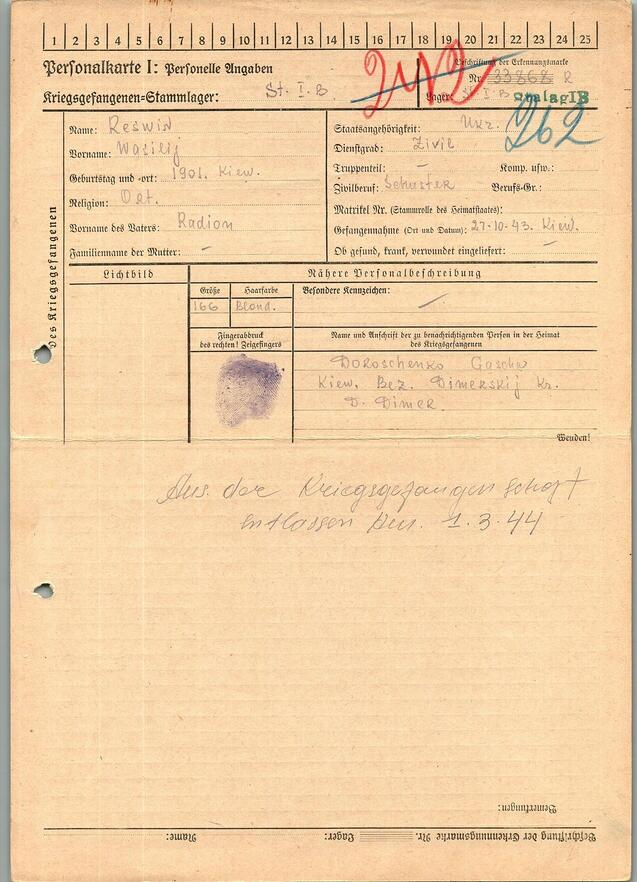 1 2 3 4 5 6 7 8 9 10 11 12 13 14 15 16 17 18 19 20 21 22 23 24 25
Personalkarte I: Personelle Angaben
Beschriftung der Erkennungsmarke
Nr. 33868 R
Kriegsgefangenen=Stammlager: St. I. B
Lager: St. I. B Stalag IB
262
Des Kriegsgefangenen
Name: Reswin
Vorname: Wasilij
Geburtstag und =ort: 1901. Kiew.
Religion: Ort.
Vorname des Vaters: Radion
Familienname der Mutter: –
Staatsangehörigkeit: Ukr.
Dienstgrad: Zivil
Truppenteil: – Komp. usw.:
Zivilberuf: Schuster Berufs=Gr.:
Matrikel Nr. (Stammrolle des Heimatstaates):
Gefangennahme (Ort und Datum): 27.10.43. Kiew.
Ob gesund, krank, verwundet eingeliefert: –
Lichtbild
Nähere Personalbeschreibung
Größe Haarfarbe
166 Blond.
Besondere Kennzeichen: –
Fingerabdruck
des rechten! Zeigefingers
Name und Anschrift der zu benachrichtigenden Person in der Heimat
des Kriegsgefangenen
Doroschenko Gascha
Kiew. Bez. Dimerskij Kr.
D. Dimer.
Wenden!
Aus der Kriegsgefangenschaft
entlassen am. 1.3.44
Bemerkungen:
Beschriftung der Erkennungsmarke Nr. Lager: Name: